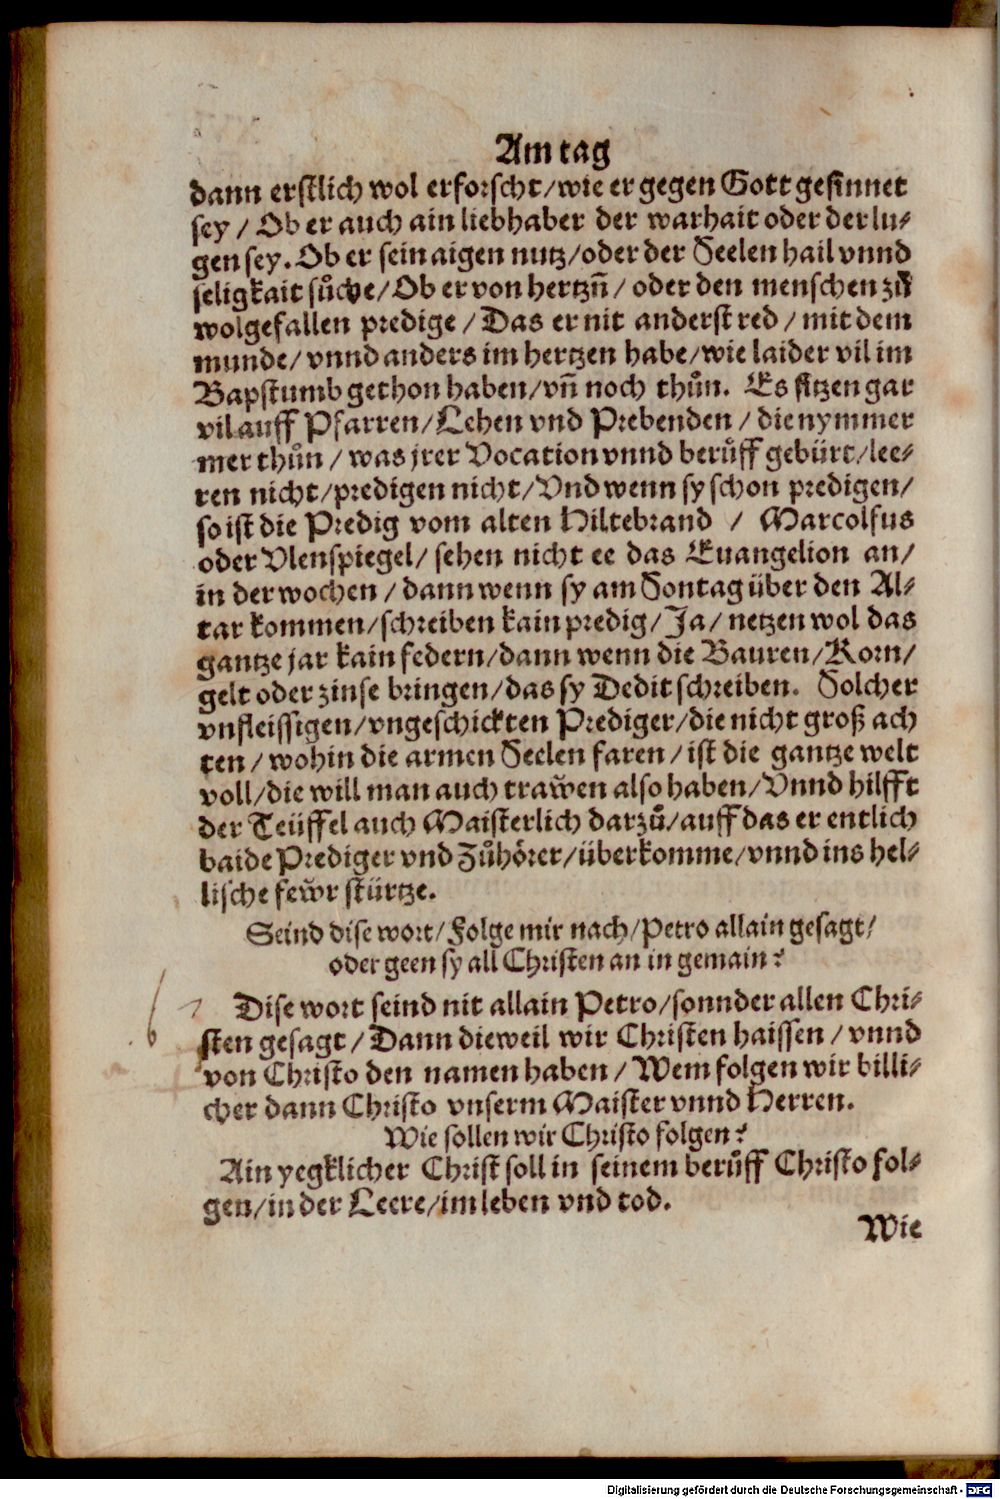 Am tag
dann erstlich wol erforscht/wie er gegen Gott gesinnet
sey / Ob er auch ain liebhaber der warhait oder der lu-
gen sey. Ob er sein aigen nutz/oder der Seelen hail vnnd
seligkait sůche/Ob er von hertzñ/ oder den menschen zů
wolgefallen predige / Das er nit anderst red / mit dem
munde/ vnnd anders im hertzen habe/wie laider vil im
Bapstumb gethon haben/vñ noch thůn. Es sitzen gar
vil auff Pfarren/Lehen vnd Prebenden / die nymmer
mer thůn / was jrer Vocation vnnd berůff gebürt/lee-
ren nicht/predigen nicht/Vnd wenn sy schon predigen/
so ist die Predig vom alten Hiltebrand / Marcolfus
oder Vlenspiegel/ sehen nicht ee das Euangelion an/
in der wochen / dann wenn sy am Sontag über den Al-
tar kommen/schreiben kain predig/ Ja/ netzen wol das
gantze jar kain federn/dann wenn die Bauren/Korn/
gelt oder zinse bringen/das sy Dedit schreiben. Solcher
vnfleissigen/vngeschickten Prediger/die nicht groß ach
ten / wohin die armen Seelen faren / ist die gantze welt
voll/die will man auch traẘen also haben/Vnnd hilfft
der Teüffel auch Maisterlich darzů/auff das er entlich
baide Prediger vnd Zůhörer/überkomme/vnnd ins hel-
lische feẘr stürtze.
Seind dise wort/Folge mir nach/Petro allain gesagt/
oder geen sy all Christen an in gemain?
Dise wort seind nit allain Petro/sonnder allen Chri-
sten gesagt / Dann dieweil wir Christen haissen / vnnd
von Christo den namen haben / Wem folgen wir billi-
cher dann Christo vnserm Maister vnnd Herren.
Wie sollen wir Christo folgen?
Ain yegklicher Christ soll in seinem berůff Christo fol-
gen/in der Leere/im leben vnd tod.
Wie
Digitalisierung gefördert durch die Deutsche Forschungsgemeinschaft - DFG